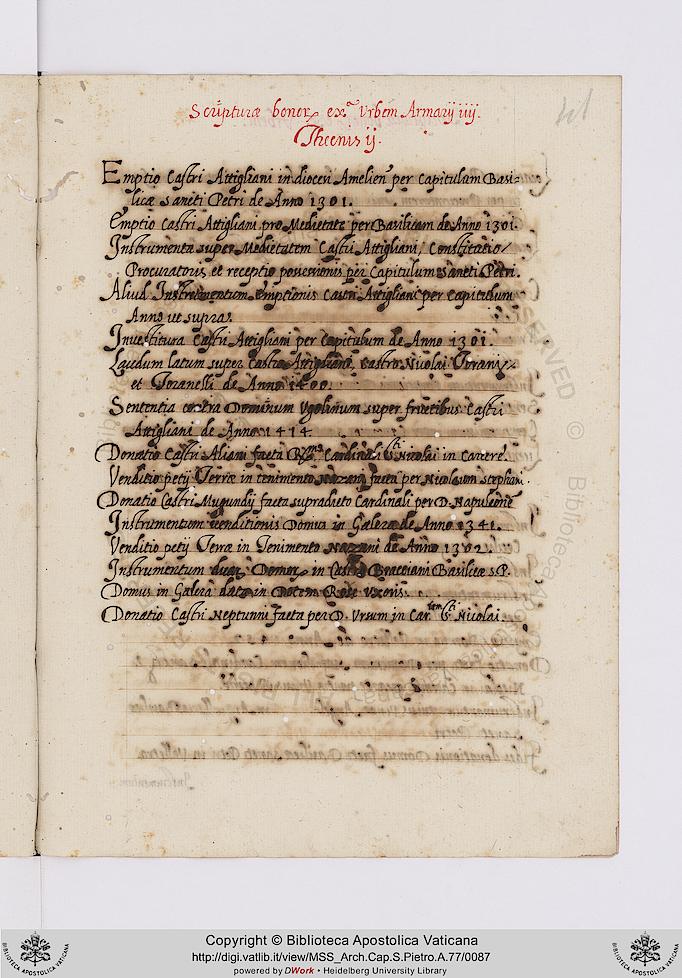 Scripturæ bonor. ex.ᵃ Vrbem Armarij iiij.
Thecenis ij.
41
Emptio Castri Attigliani in dioceri Amelien per Capitulum Basi=
licæ sancti Petri de Anno 1301.
Emptio Castri Attigliani pro Medietate per Basilicam de Anno 1301.
Instrumenta super Medietatem Castri Attigliani, Constitutio
Procuratoris et receptio possessionis per Capitulum Sancti Petri.
Aliud Instrumentum Emptionis Castri Attigliani per Capitulum
Anno ut supra.
Inuestitura Castri Attigliani per Capitulum de Anno 1301.
Laudum latum super Castro Attigliano, Castro Nicolai
et de Anno 1400.
Sententia contra Dominum Vgolinum super fructibus Castri
Attigliani de Anno 1414
Donatio Castri Aliani facta Cardinali Sti Nicolai in Carcere.
Venditio petij Terræ in tenimento Nazzani facta per Nicolaum Stephani.
Donatio Castri Mugundij facta supradicto Cardinali per D. Napuleone
Instrumentum venditionis Domus in Galera de Anno 1341.
Venditio petij Terræ in Tenimento Nazzani de Anno 1302.
Instrumentum duar. Domor. in Castro Bracciani Basilicæ S.P.
Domus in Galera data in Dotem Rose Vxoris.
Donatio Castri Neptunni facta per D. Vrsum in Car.lem Sti Nicolai.
Copyright © Biblioteca Apostolica Vaticana
http://digi.vatlib.it/view/MSS_Arch.Cap.S.Pietro.A.77/0087
powered by DWork • Heidelberg University Library